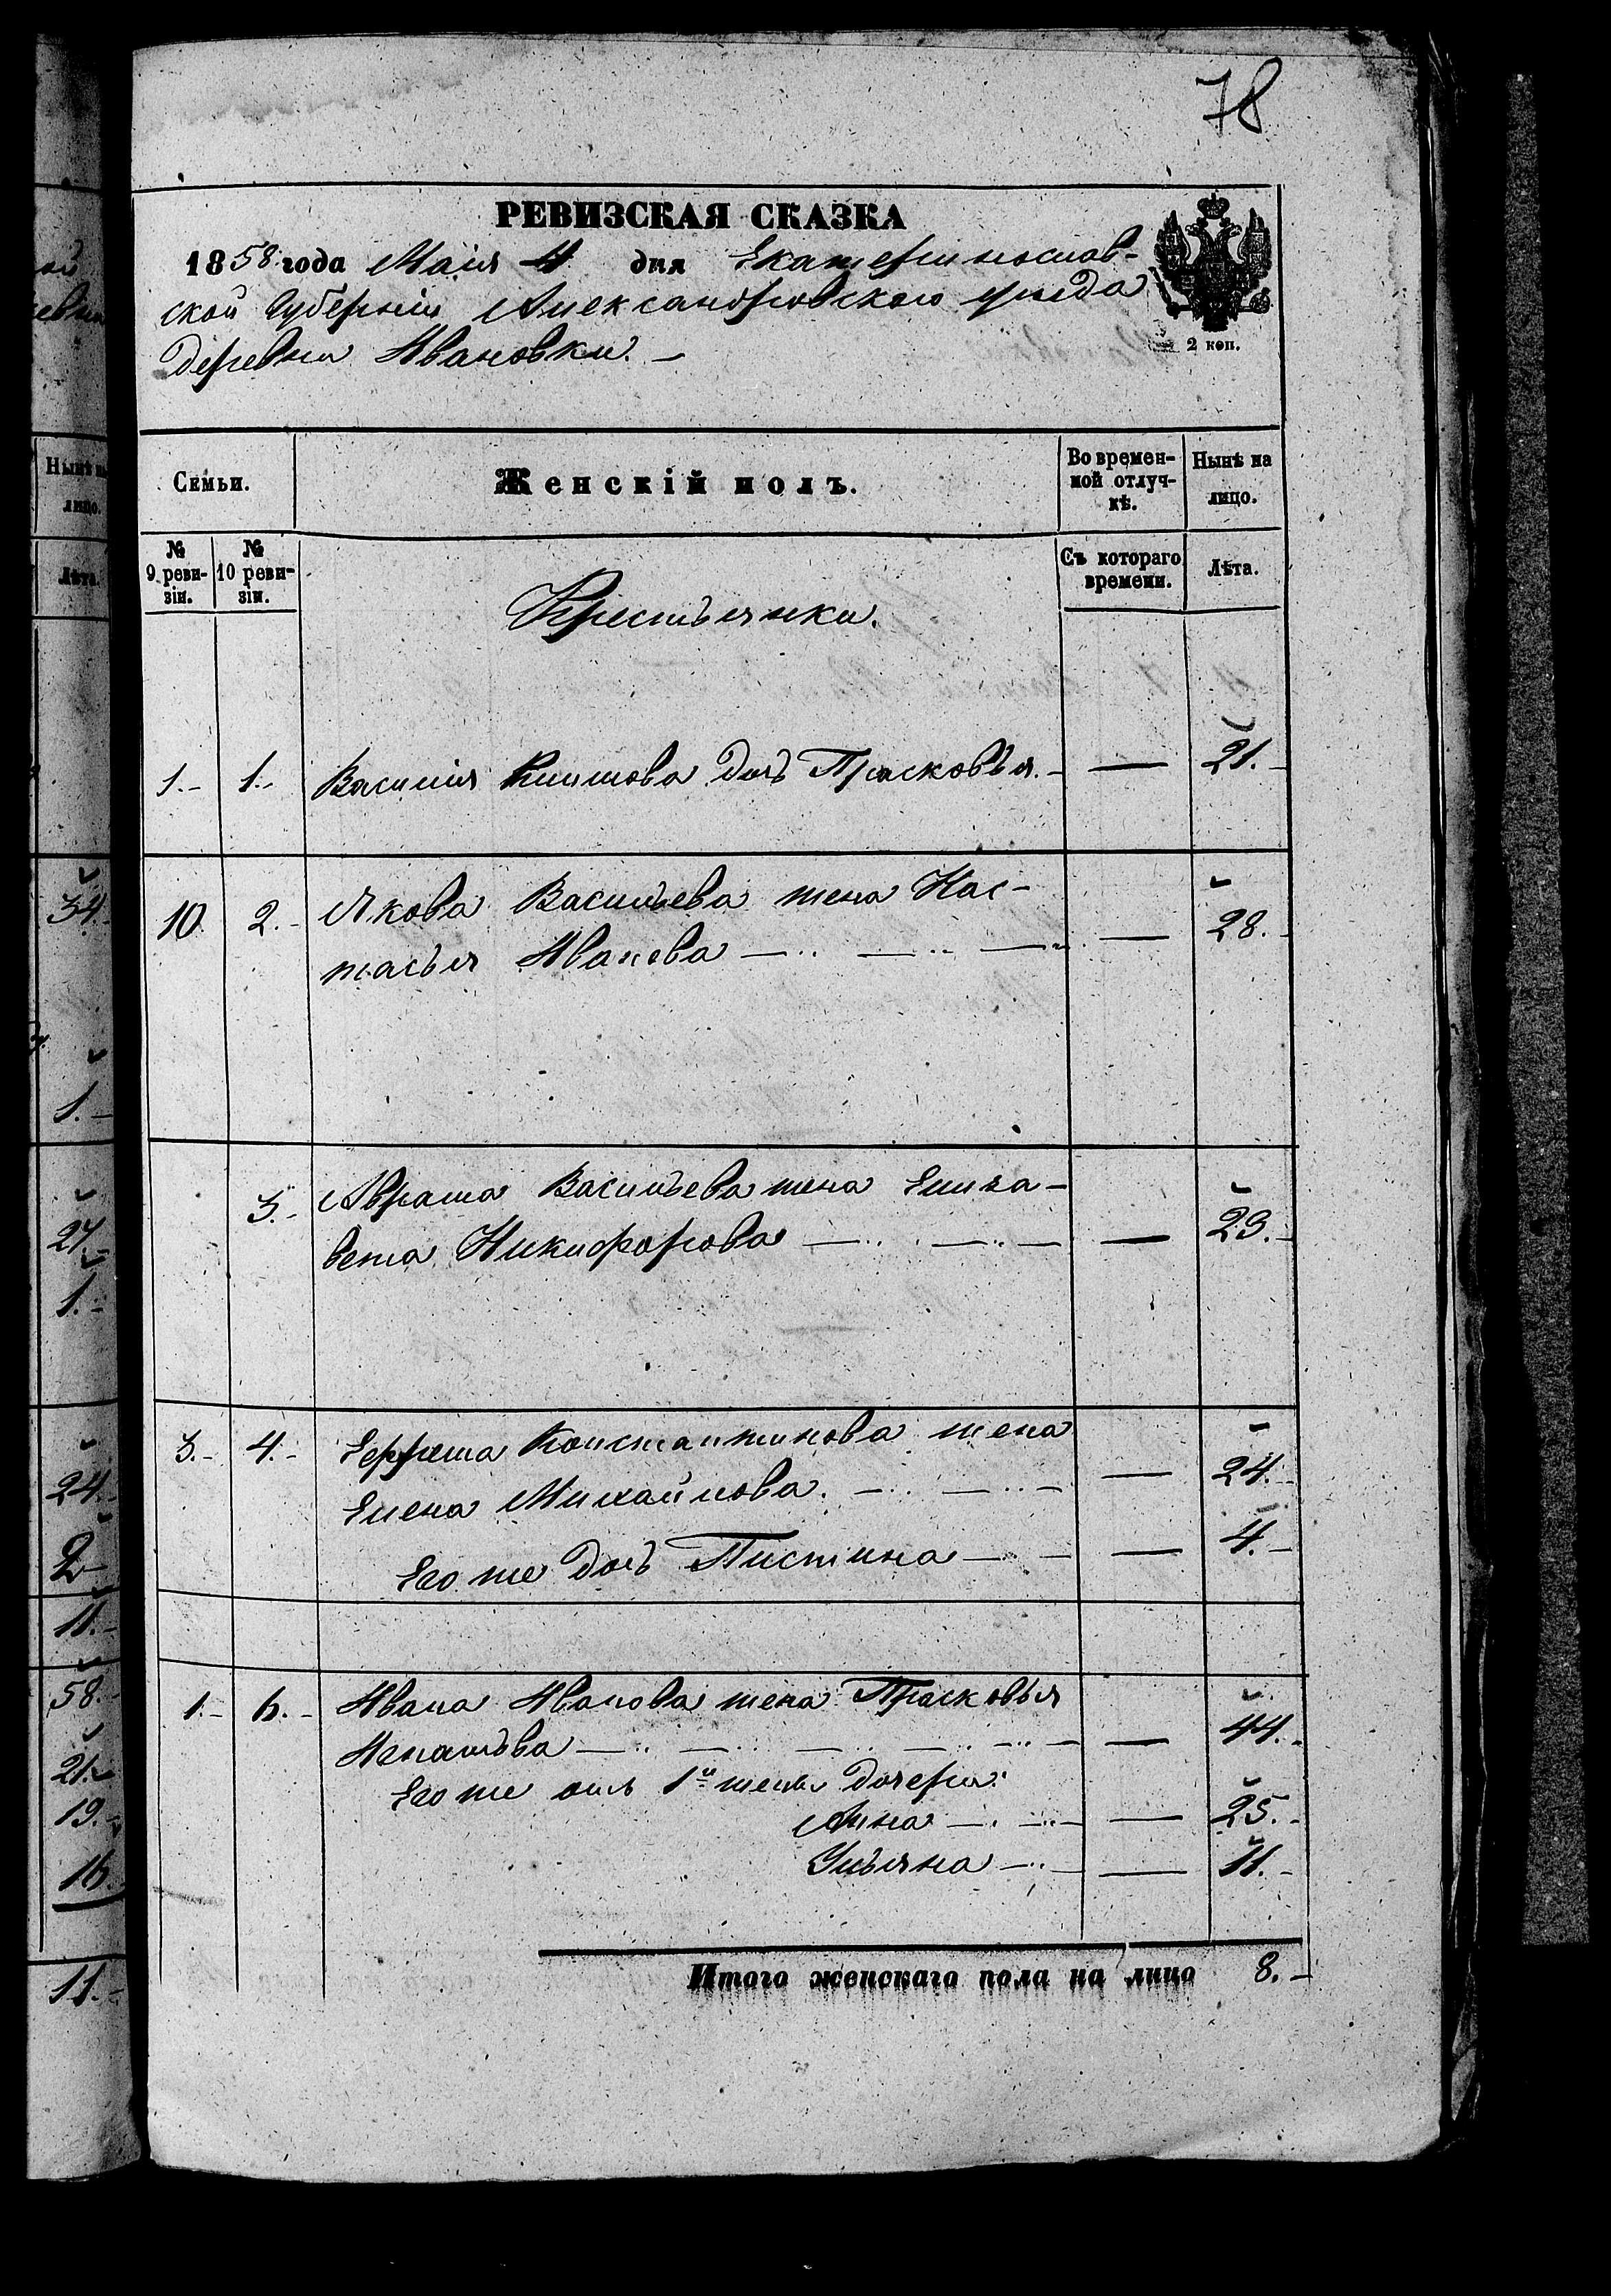 78
РЕВИЗСКАЯ СКАЗКА
1858 года Маія 4 дня Екатеринослав-
ской Губерніи Александровскаго уѣзда
деревни Ивановки. —
2 коп.
Семьи.
Женскій полъ.
Во времен-
ной отлуч-
кѣ.
Нынѣ на
лицо.
№
9 реви-
зіи.
№
10 реви-
зіи.
Съ котораго
времени.
Лѣта.
Крестьянки.
1.- 1.- Василія Климова дочь Прасковья. — 21.-
10 2.- Якова Васильева жена Нас-
тасья Иванова — 28.-
3.- Аврама Васильева жена Елиза-
вета Никифорова — 23.-
3.- 4.- Ефрема Константинова жена
Елена Михайлова. — 24.-
Его же дочь Пистина — 4.-
1.- 6.- Ивана Иванова жена Прасковья
Игнатьва — 44.-
Его же отъ 1й жены дочери:
Анна — 25.-
Ульяна — 11.-
Итого женскаго пола на лицо 8.-
Нынѣ на
лицо.
Лѣта.
34.-
1.-
27.-
1.-
24.-
2.-
11.-
58.-
21.-
19.-
16.-
11.-